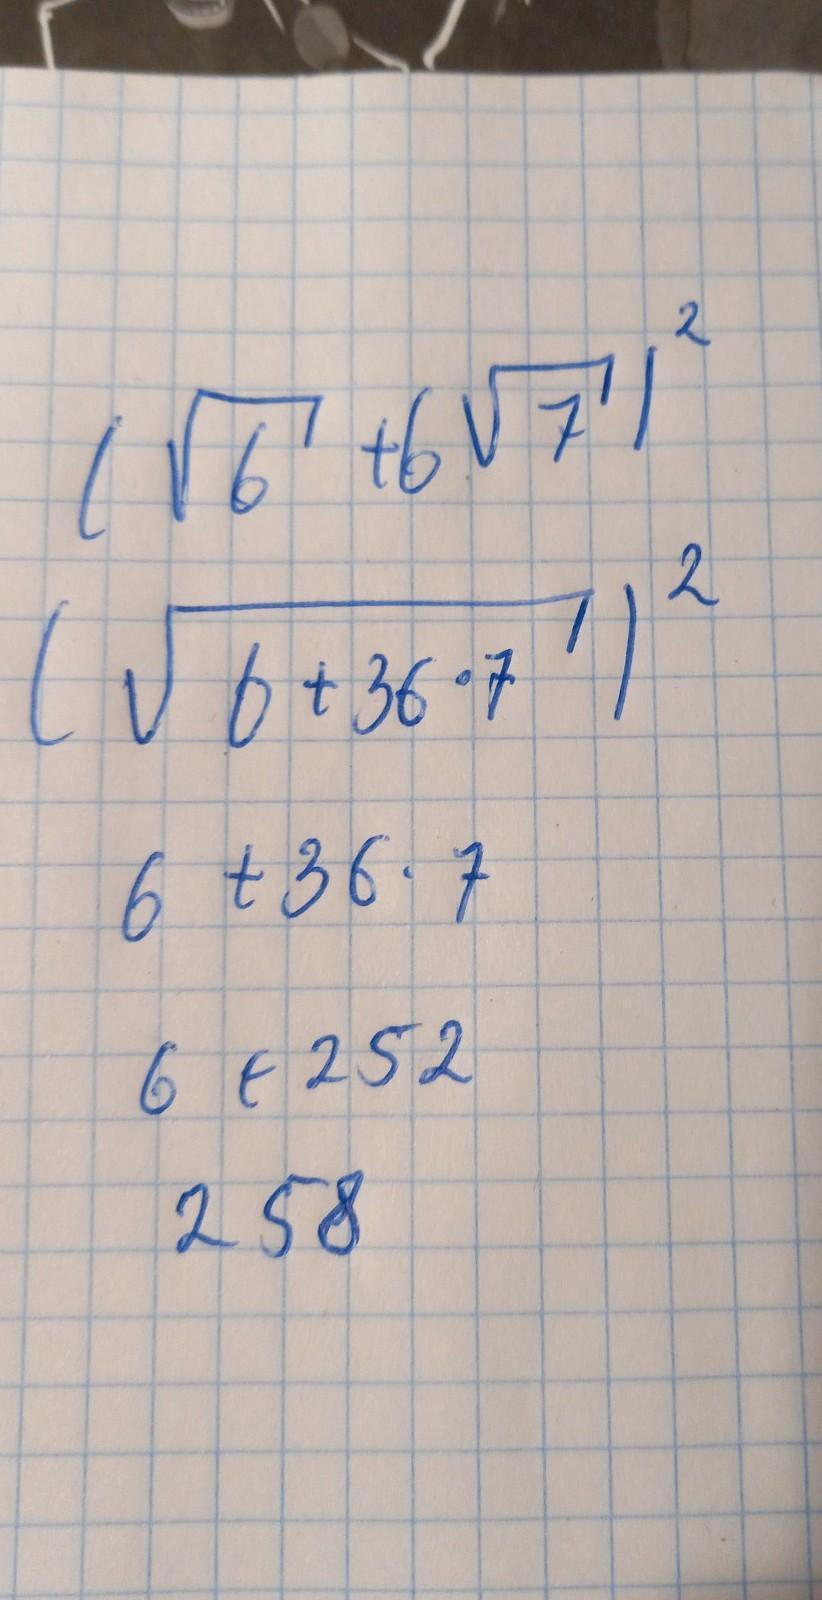 (√6 + 6√7)²
(√6 + 36·7)²
6 + 36·7
6 + 252
258